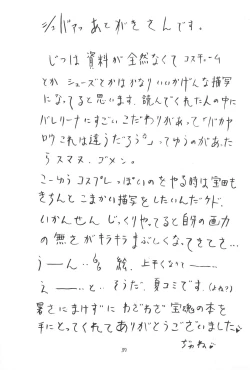 じつは資料が全然なくてコスチューム
とかシューズとかはかなりいいかげんな描写
になってると思います。読んでくれた人の中に
バレリーナにすごいこだわりがあって「バカヤ
ロウこれは違うだろう」ってゆうのがあった
らスマヌ、ゴメン。
こーゆうコスプレっぽいのをやる時は宝田も
きちんとこまかい描写をしたいんだケド、
いかんせんじっくりやってると自分の画力
の無さがキラキラまぶしくなってきてさ…
うーん…絵、上手くなりてー
えーと…そうだ、夏コミです。
暑さにまけずにわざわざ宝魂の本を
手にとってくれてありがとうございました